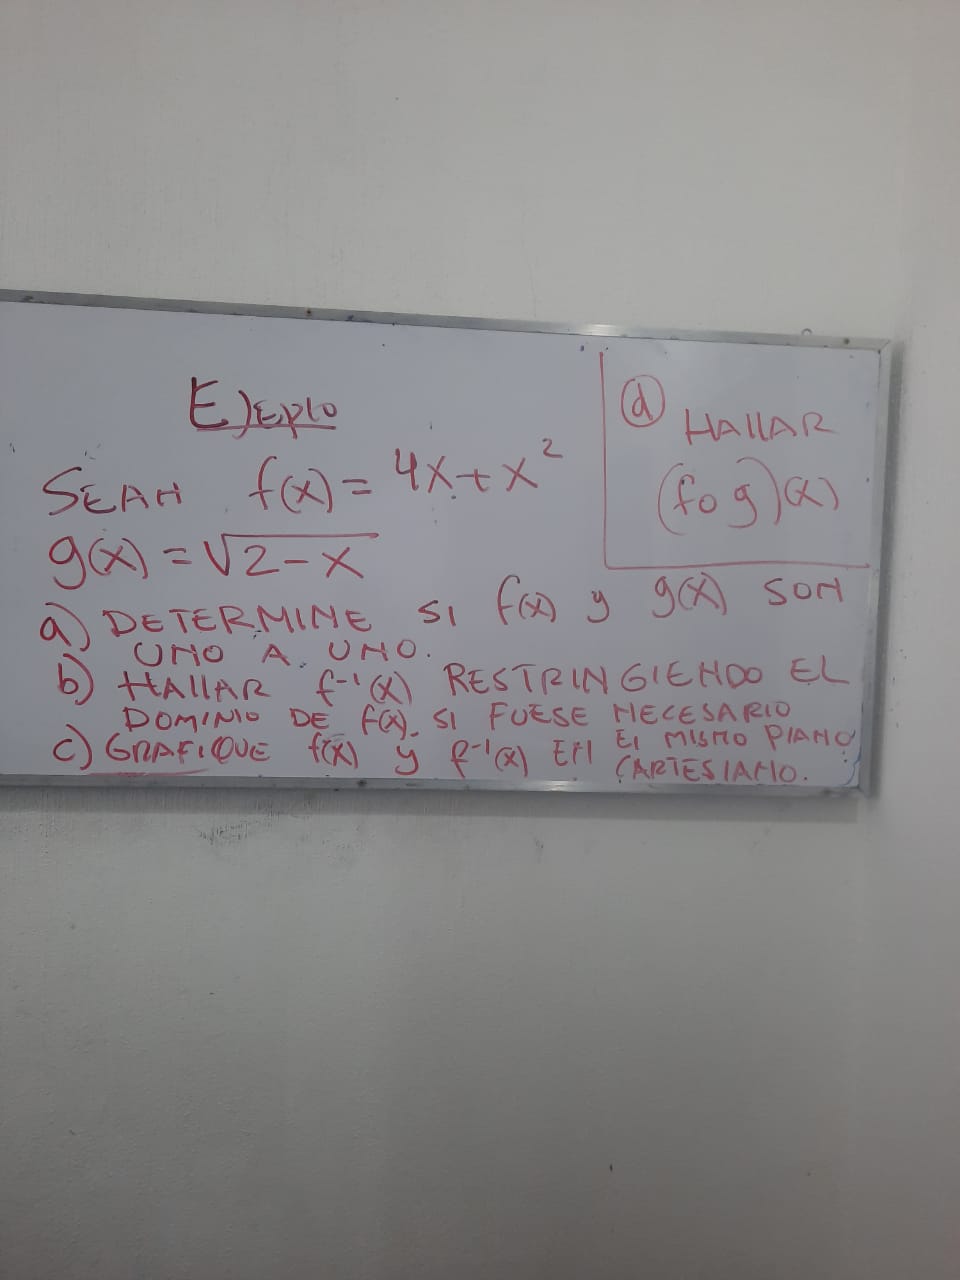 EJEplo
SEAN f(x) = 4x + x²
g(x) = √2-x
a) DETERMINE SI f(x) y g(x) SON
UNO A UNO.
b) HALLAR f⁻¹(x) RESTRINGIENDO EL
DOMINIO DE f(x). SI FUESE NECESARIO
c) GRAFIQUE f(x) y f⁻¹(x) EN El MISMO PlANO
CARTESIANO.
d HALLAR
(fog)(x)